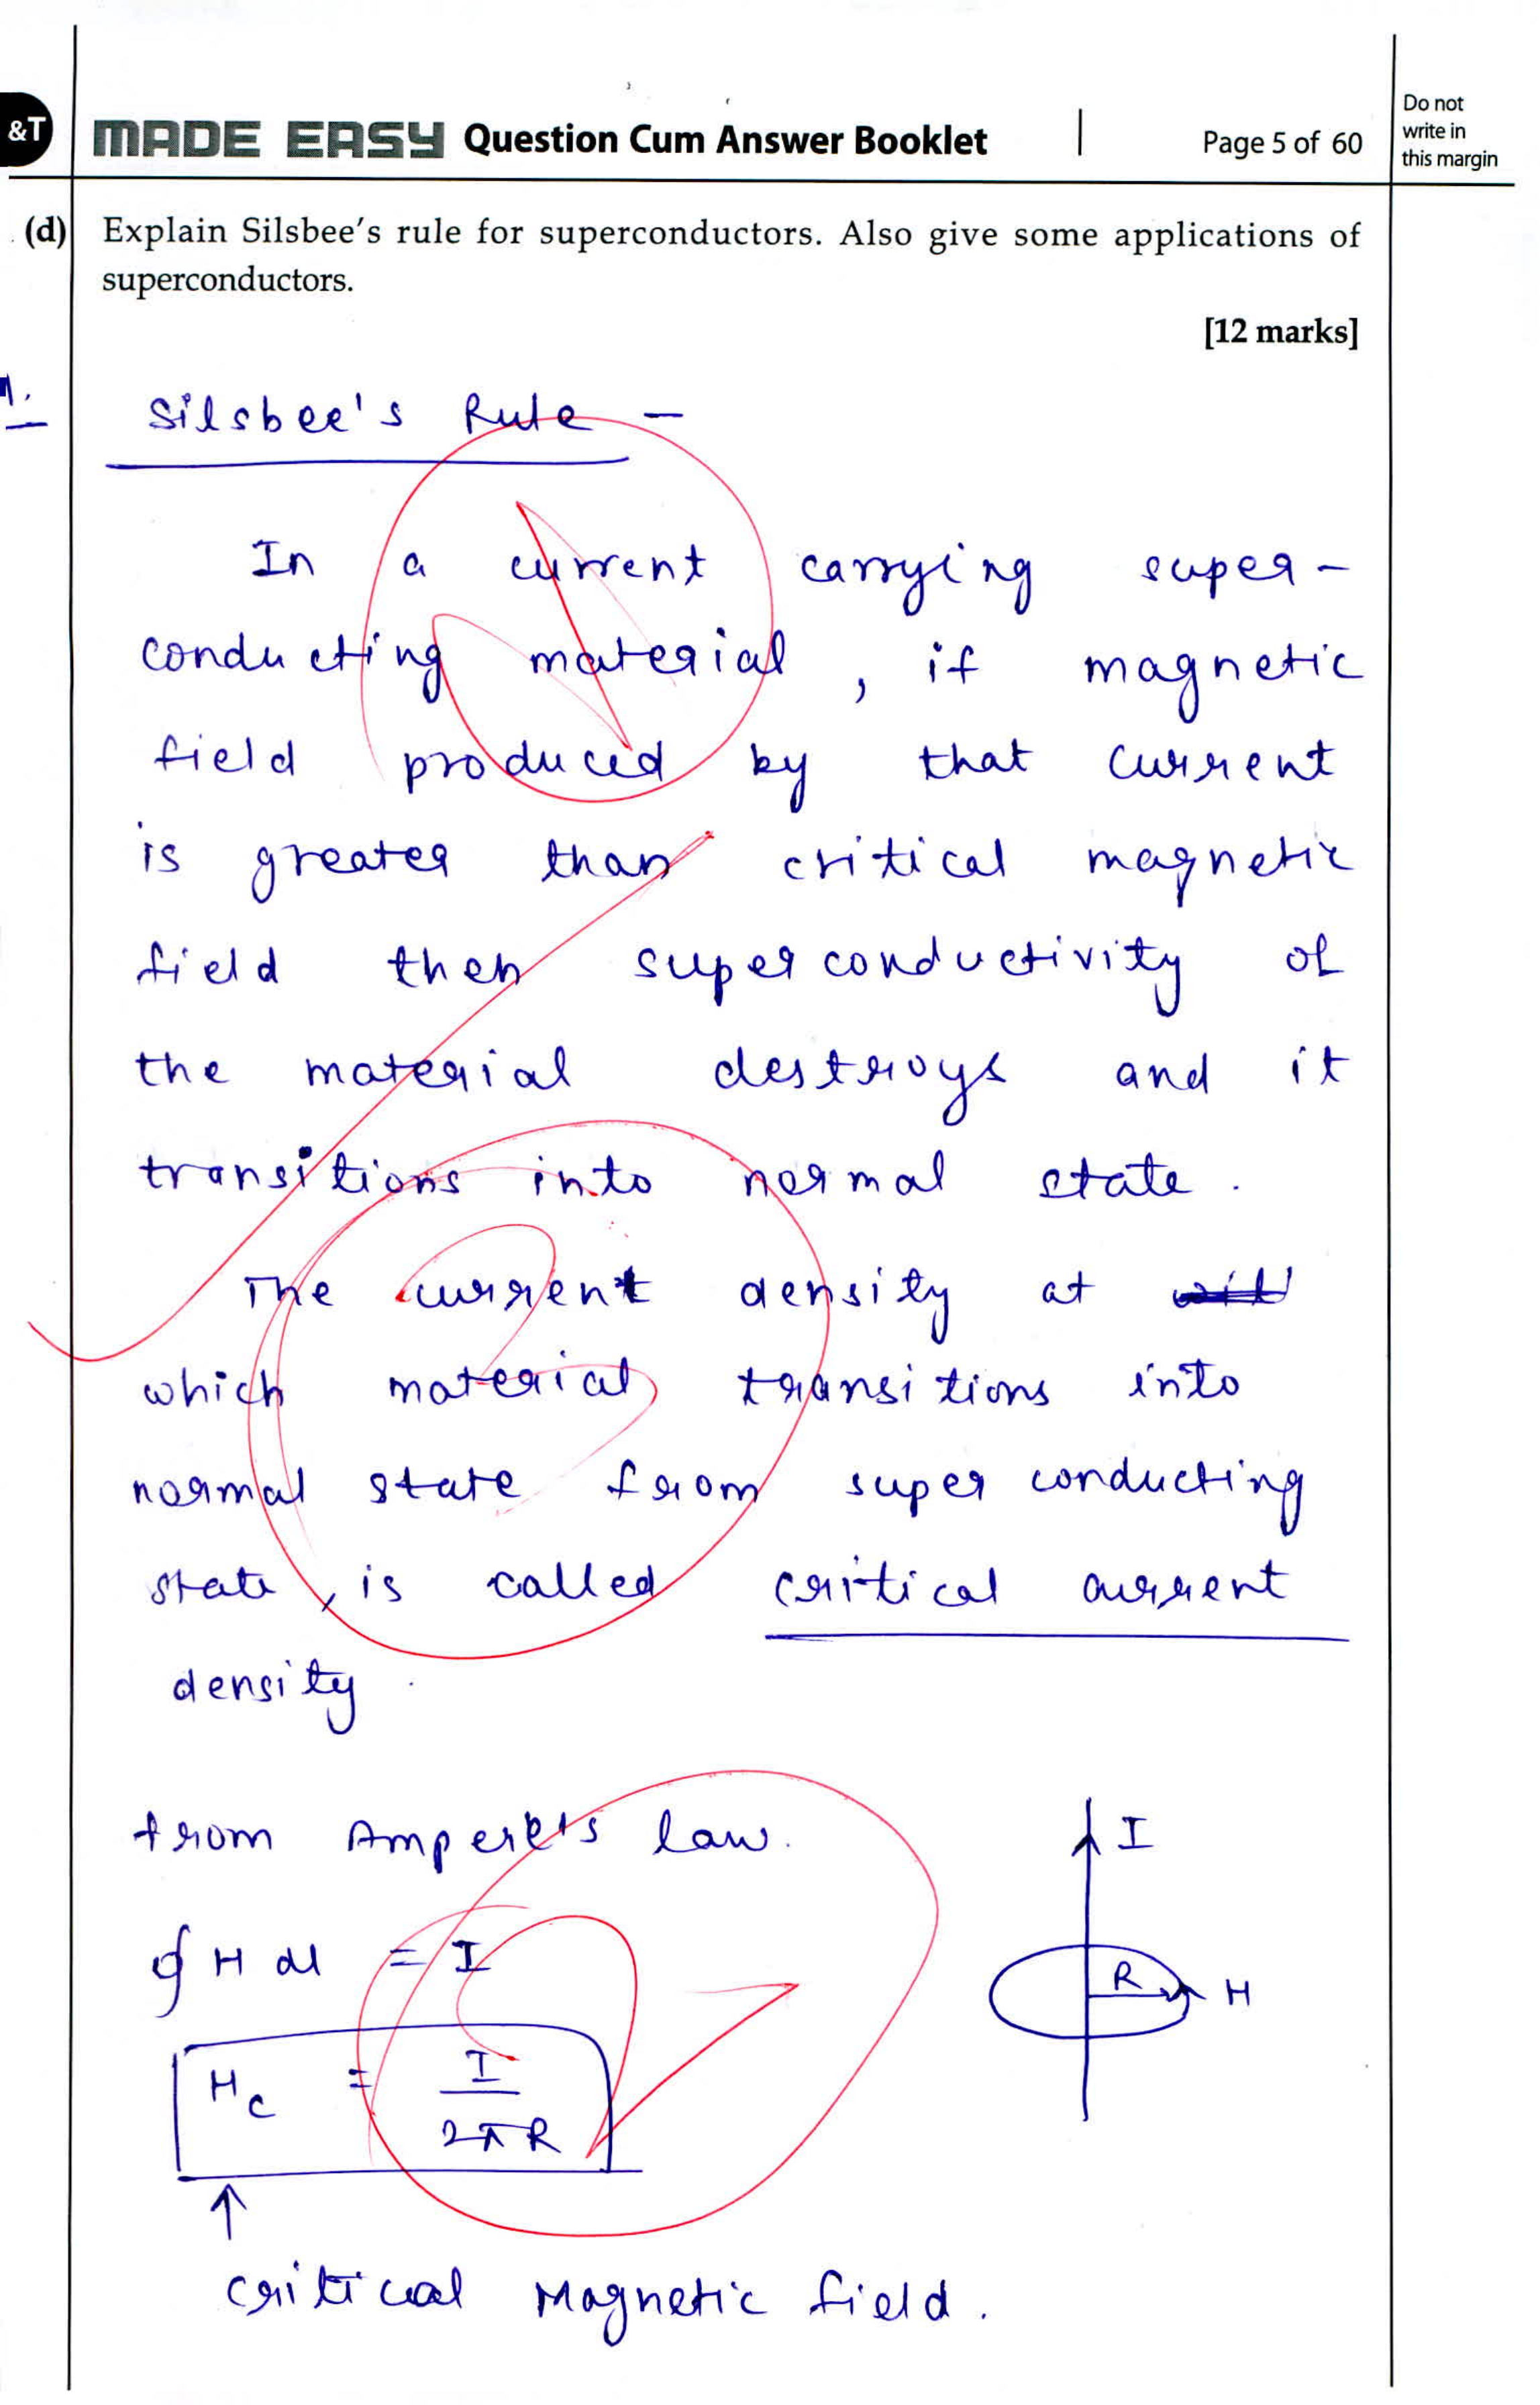 &T
MADE EASY Question Cum Answer Booklet | Page 5 of 60
Do not
write in
this margin
(d) Explain Silsbee's rule for superconductors. Also give some applications of
superconductors.
[12 marks]
Silsbee's Rule –
In a current carrying super-
conducting material, if magnetic
field produced by that current
is greater than critical magnetic
field then superconductivity of
the material destroys and it
transitions into normal state.
The current density at
which material transitions into
normal state from super conducting
state, is called critical current
density.
from Ampere's law.
∮ H dl = I
H_c = I / 2πR
↑
critical Magnetic field.
I
R
H